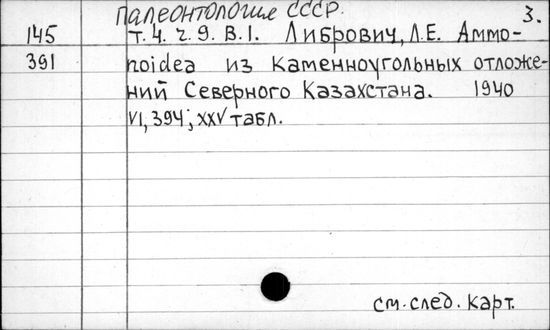 Палеонтология СССР.
3.
145 т.4. ч.9. В.1. Либрович, Л.Е. Аммо-
391 noidea из каменноугольных отложе-
ний Северного Казахстана. 1940
VI, 394; XXV табл.
см. след. карт.